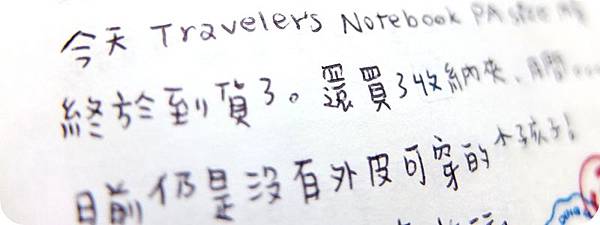 今天 Traveler's Notebook PA size
終於到貨了。還買了收納夾、月間....
目前仍是沒有外皮可穿的小孩子!